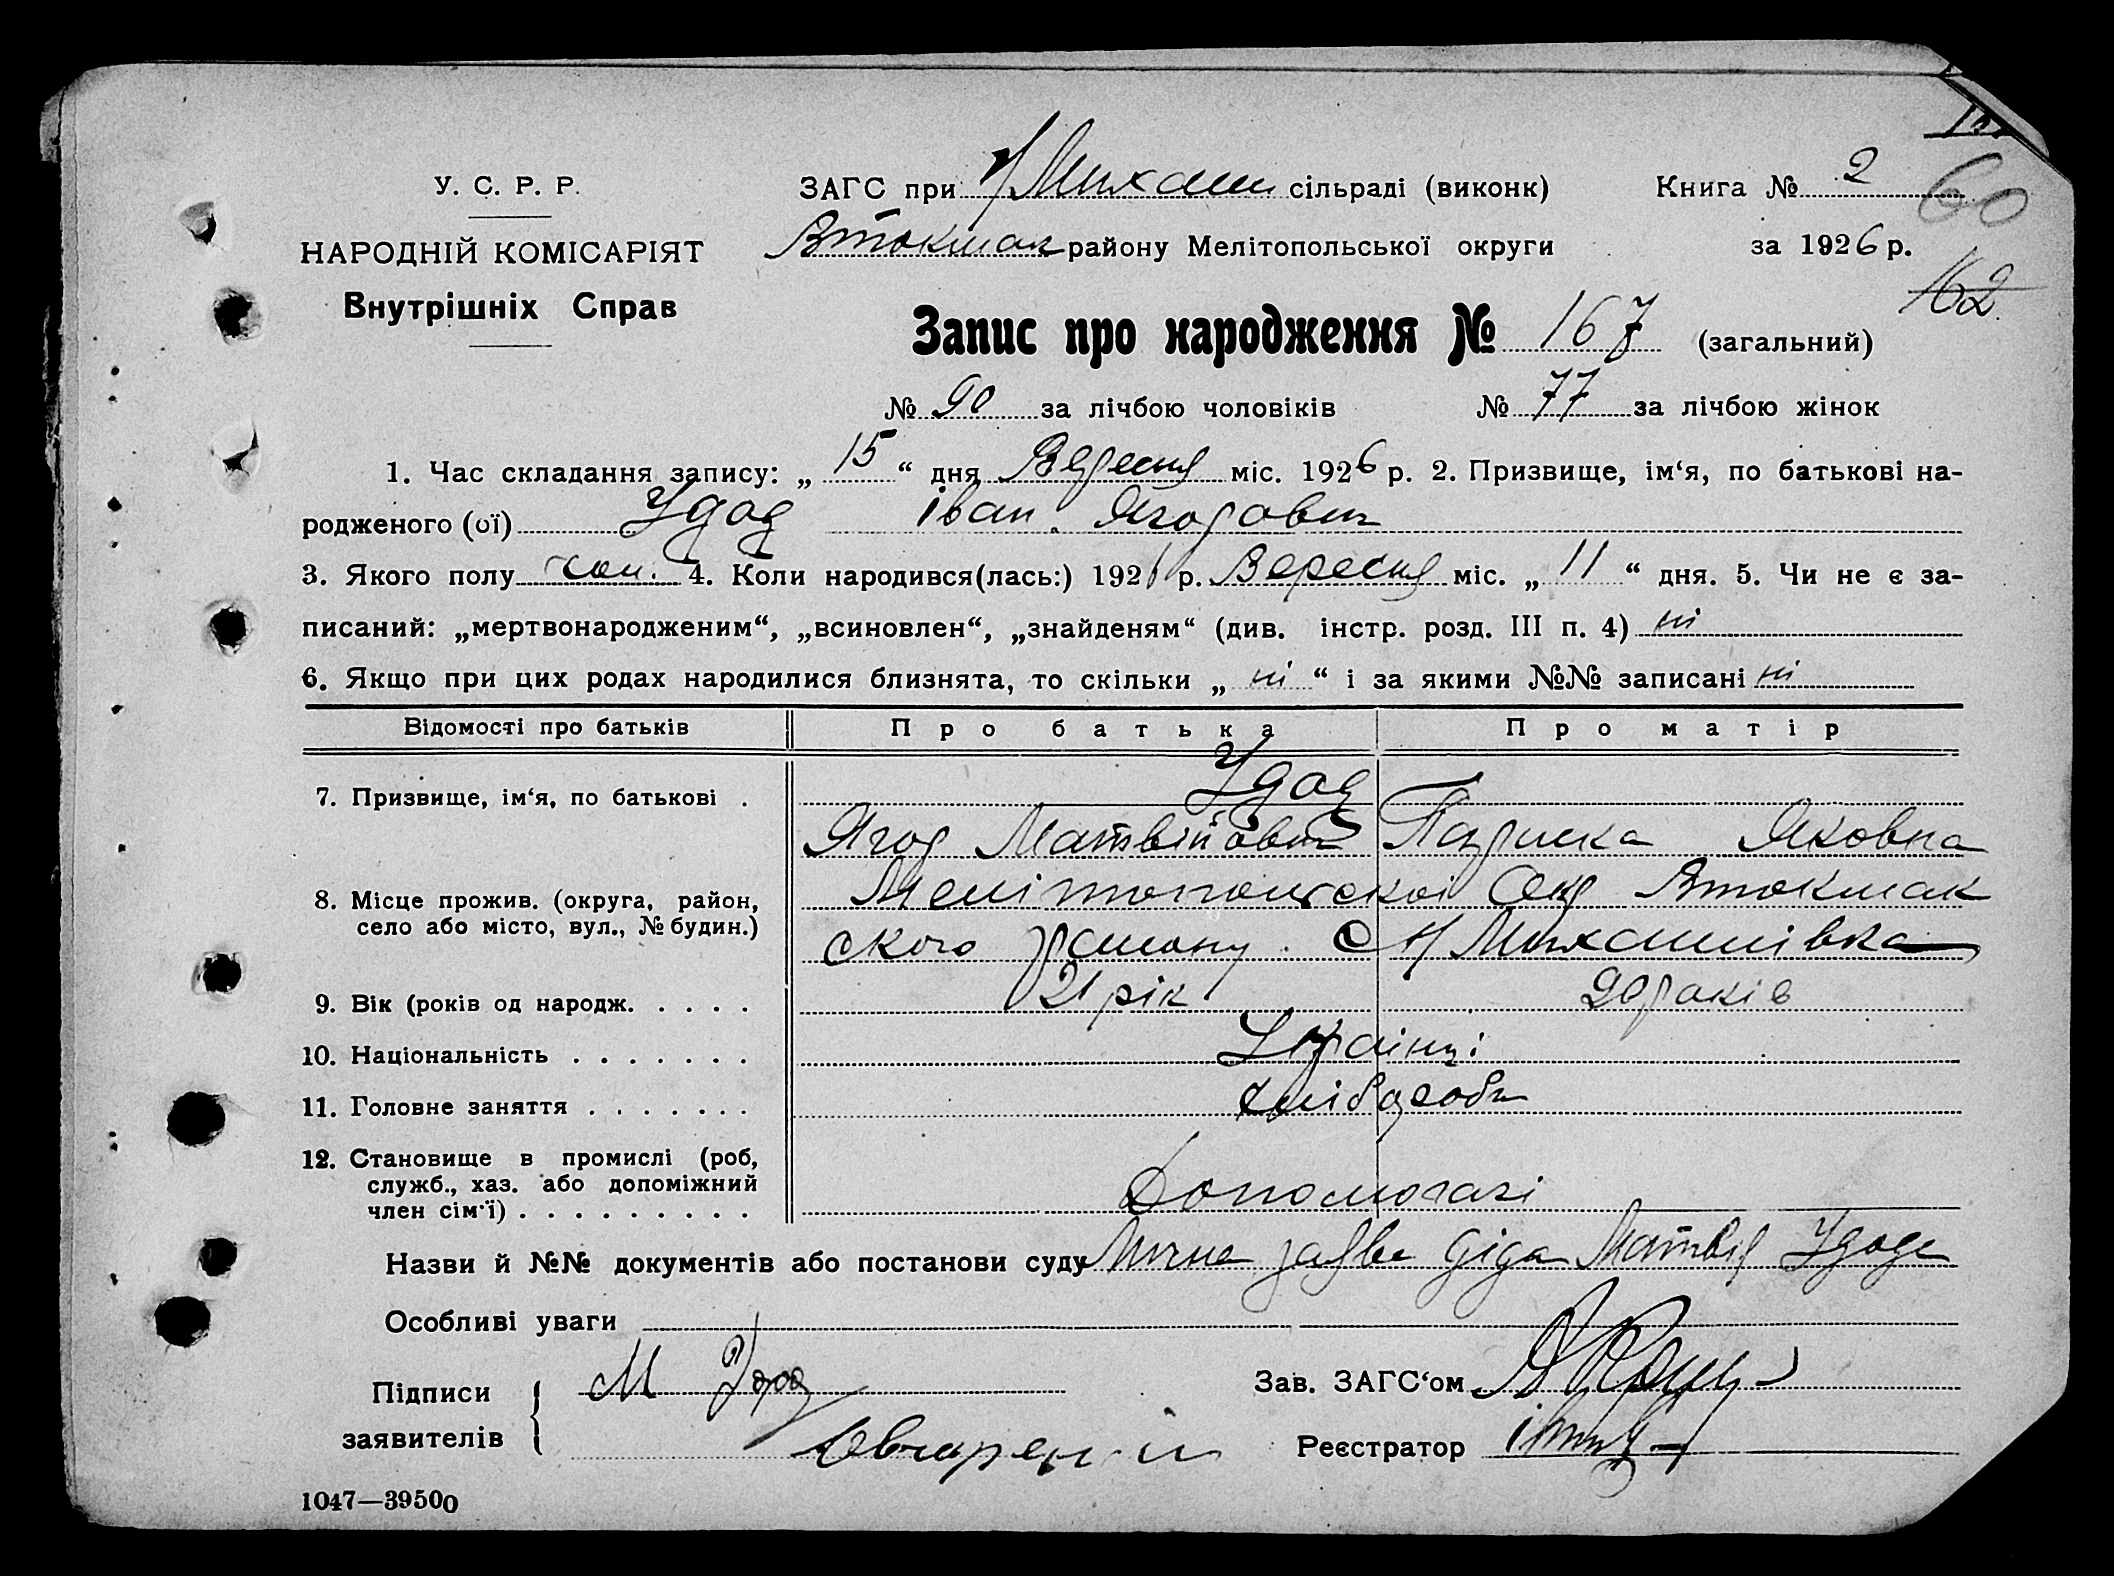 У. С. Р. Р.
НАРОДНІЙ КОМІСАРІЯТ
Внутрішніх Справ
ЗАГС при Н Михайл сільраді (виконк)
Втокмак району Мелітопольської округи
Книга № 2
за 1926 р.
60
162
Запис про народження № 167 (загальний)
№ 90 за лічбою чоловіків № 77 за лічбою жінок
1. Час складання запису: „ 15 “ дня Вересня міс. 1926 р. 2. Призвище, ім‘я, по батькові на-
родженого (ої) Удод Іван Ягорович
3. Якого полу чол. 4. Коли народився(лась:) 1926 р. Вересня міс. „ 11 “ дня. 5. Чи не є за-
писаний: „мертвонародженим“, „всиновлен“, „знайденям“ (див. інстр. розд. III п. 4) ні
6. Якщо при цих родах народилися близнята, то скільки „ ні “ і за якими №№ записані ні
Відомості про батьків Про батька Про матір
7. Призвище, ім‘я, по батькові . Удод
Ягор Матвійович Яковна
8. Місце прожив. (округа, район,
село або місто, вул., № будин.)
Мелітопольскої Окр Втокмак
ского району с Н Михайлівка
9. Вік (років од народж. . . . . 21 рік 20 років
10. Національність . . . . . . . Українці
11. Головне заняття . . . . . . . хлібороби
12. Становище в промислі (роб,
служб., хаз. або допоміжний
член сім‘ї) . . . . . . . . . Допомогачі
Назви й №№ документів або постанови суду заява діда Матвія Удода
Особливі уваги
Підписи
заявителів
М Удод
Зав. ЗАГС‘ом
Реєстратор
1047—39500